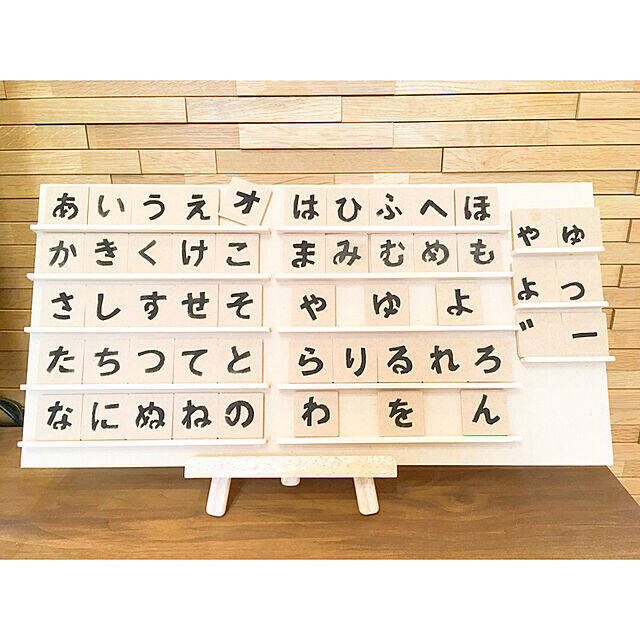 あいうえオ
かきくけこ
さしすせそ
たちつてと
なにぬねの
はひふへほ
まみむめも
やゆよ
らりるれろ
わをん
ゃゅ
ょっ
゛ー